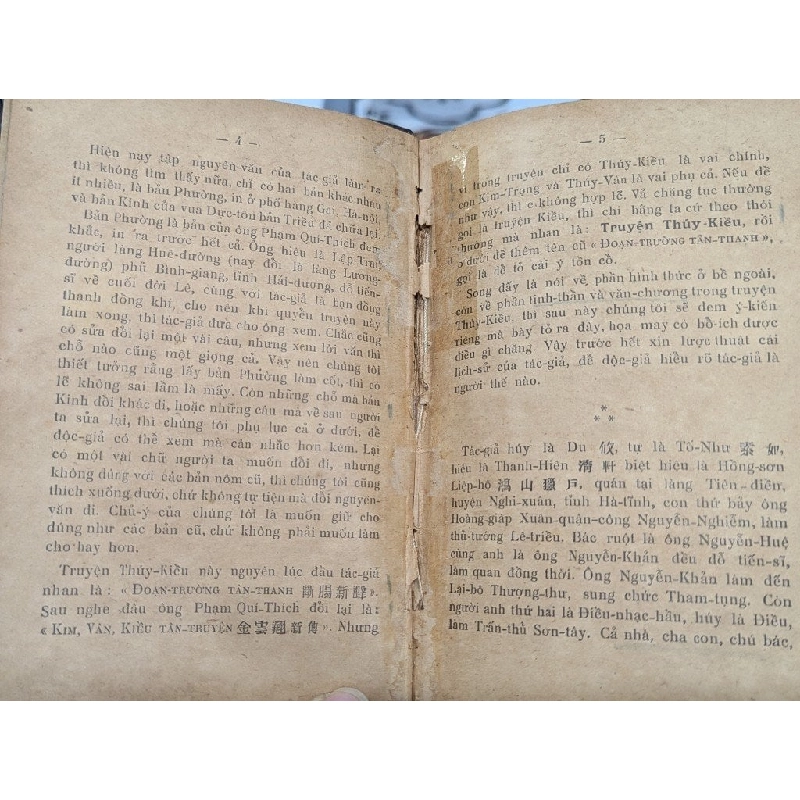 — 4 —
Hiện nay tập nguyên-văn của tác-giả làm ra
thì không tìm thấy nữa, chỉ có hai bản khác nhau
ít nhiều, là bản Phường, in ở phố hàng Gai, Hà-nội,
và bản Kinh của vua Dực-tôn bản Triều đã chữa lại.
Bản Phường là bản của ông Phạm Quí-Thích đem
khắc, in ra trước hết cả. Ông hiệu là Lập-Trai,
người làng Huê-đường (nay đổi là làng Lương-
đường) phủ Bình-giang, tỉnh Hải-dương, đỗ tiến-
sĩ về cuối đời Lê, cùng với tác-giả là bạn đồng
thanh đồng khí, cho nên khi quyển truyện này
làm xong, thì tác-giả đưa cho ông xem. Chắc cũng
có sửa đổi lại một vài câu, nhưng xem lời văn thì
chỗ nào cũng một giọng cả. Vậy nên chúng tôi
thiết tưởng rằng lấy bản Phường làm cốt, thì có
lẽ không sai lầm là mấy. Còn những chỗ mà bản
Kinh đổi khác đi, hoặc những câu mà về sau người
ta sửa lại, thì chúng tôi phụ lục cả ở dưới, để
độc-giả có thể xem mà cân nhắc hơn kém. Lại
có một vài chữ người ta muốn đổi đi, nhưng
không đúng với các bản nôm cũ, thì chúng tôi cũng
thích xuống dưới, chứ không tự tiện mà đổi nguyên-
văn đi. Chủ-ý của chúng tôi là muốn giữ cho
đúng như các bản cũ, chứ không phải muốn làm
cho hay hơn.
Truyện Thúy-Kiều này nguyên lúc đầu tác-giả
nhan là : « ĐOẠN-TRƯỜNG TÂN-THANH 斷腸新聲 ».
Sau nghe đâu ông Phạm Quí-Thích đổi lại là :
« KIM, VÂN, KIỀU TÂN-TRUYỆN 金雲翹新傳 ». Nhưng
— 5 —
vì trong truyện chỉ có Thúy-Kiều là vai chính,
còn Kim-Trọng và Thúy-Vân là vai phụ cả. Nếu để
như vậy, thì e không hợp lẽ. Vả chăng tục thường
gọi là truyện Kiều, thì chi bằng ta cứ theo thói
thường mà nhan là : Truyện Thúy-Kiều, rồi
ở dưới để thêm tên cũ « ĐOẠN-TRƯỜNG TÂN-THANH »,
gọi là để tỏ cái ý tồn cổ.
Song đấy là nói về phần hình thức ở bề ngoài,
còn về phần tinh-thần và văn-chương trong truyện
Thúy-Kiều, thì sau này chúng tôi sẽ đem ý-kiến
riêng mà bày tỏ ra đây, họa may có bổ-ích được
điều gì chăng. Vậy trước hết xin lược thuật cái
lịch-sử của tác-giả, để độc-giả hiểu rõ tác-giả là
người thế nào.
* * *
Tác-giả húy là Du 攸, tự là Tố-Như 素如,
hiệu là Thanh-Hiên 清軒 biệt hiệu là Hồng-sơn
Liệp-hộ 鴻山獵戶, quán tại làng Tiên-điền,
huyện Nghi-xuân, tỉnh Hà-tĩnh, con thứ bảy ông
Hoàng-giáp Xuân-quận-công Nguyễn-Nghiễm, làm
thủ-tướng Lê-triều. Bác ruột là ông Nguyễn-Huệ
cùng anh là ông Nguyễn-Khản đều đỗ tiến-sĩ,
làm quan đồng thời. Ông Nguyễn-Khản làm đến
Lại-bộ Thượng-thư, sung chức Tham-tụng. Còn
người anh thứ hai là Điền-nhạc-hầu, húy là Điều,
làm Trấn-thủ Sơn-tây. Cả nhà, cha con, chú bác,